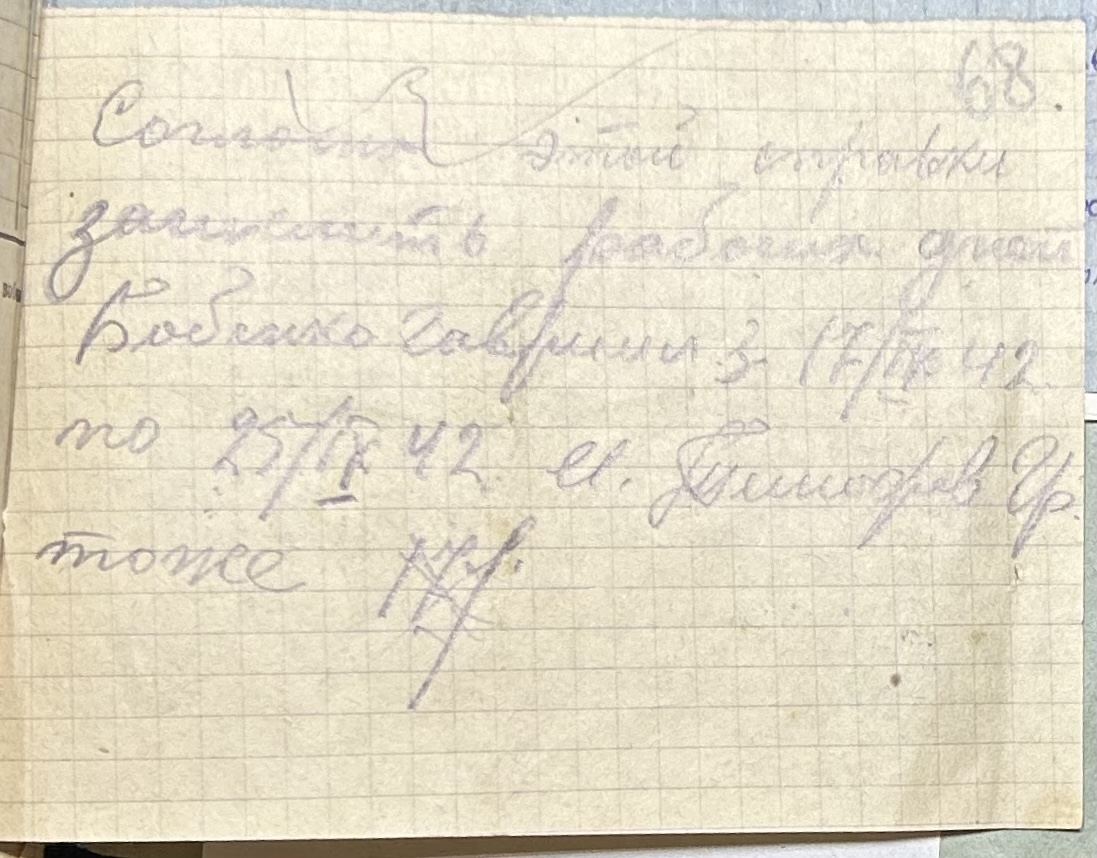 68.
Согласно этой справки
зачислить рабочих дней
Бобенко Гаврилы з 17/IX 42
по 25/IX 42 и. Тимофеев Гр.
тоже